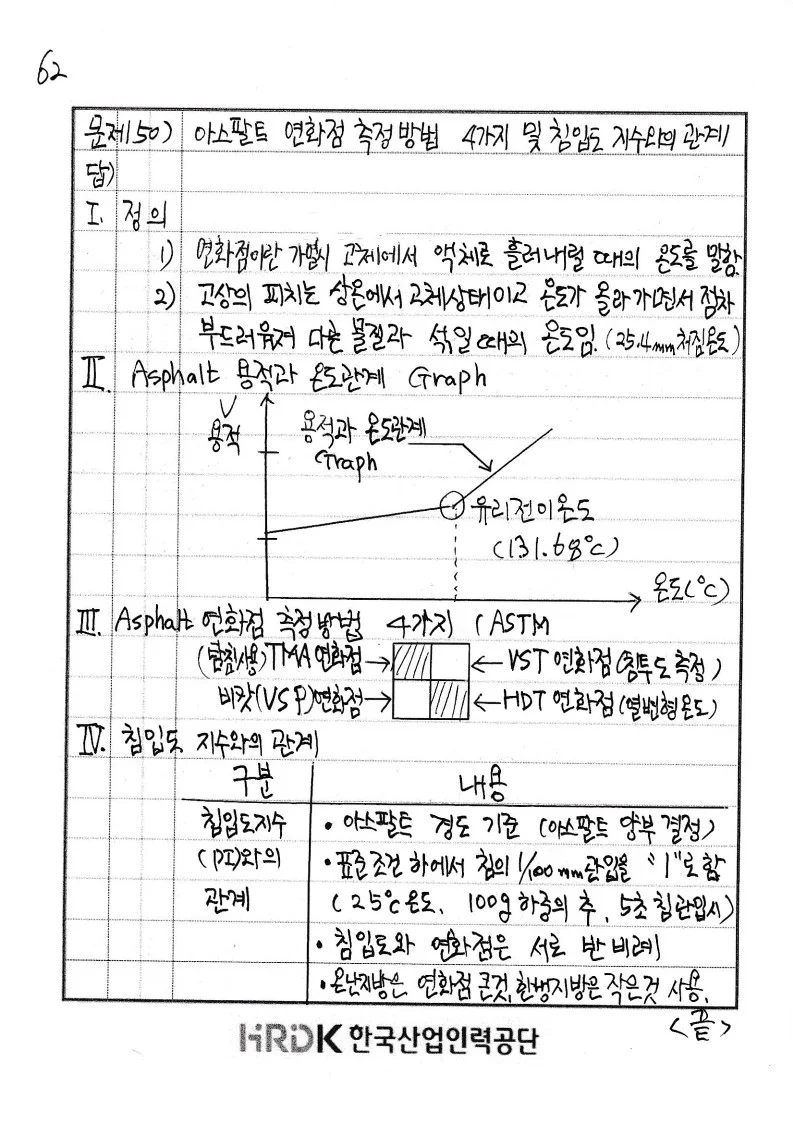 62
문제50) 아스팔트 연화점 측정방법 4가지 및 침입도 지수와의 관계
답)
I. 정의
1) 연화점이란 가열시 고체에서 액체로 흘러내릴 때의 온도를 말함
2) 고상의 피치는 상온에서 고체상태이고 온도가 올라가면서 점차
부드러워져 다른 물질과 섞일때의 온도임. (25.4mm처짐온도)
II. Asphalt 용적과 온도관계 Graph
V
용적
용적과 온도관계
Graph
유리전이온도
(131.68℃)
온도(℃)
III. Asphalt 연화점 측정방법 4가지 (ASTM
(탐침사용)TMA연화점→ ←VST 연화점(침투도측정)
비캇(VSP)연화점→ ←HDT 연화점(열변형온도)
IV. 침입도 지수와의 관계
구분 내용
침입도지수 • 아스팔트 경도 기준 (아스팔트 양부 결정)
(PI)와의 • 표준조건 하에서 침의 1/100mm관입을 "1"로 함
관계 (25℃온도, 100g 하중의 추, 5초 침관입시)
• 침입도와 연화점은 서로 반비례
• 온난지방은 연화점 큰것, 한랭지방은 작은것 사용.
<끝>
HRDK 한국산업인력공단